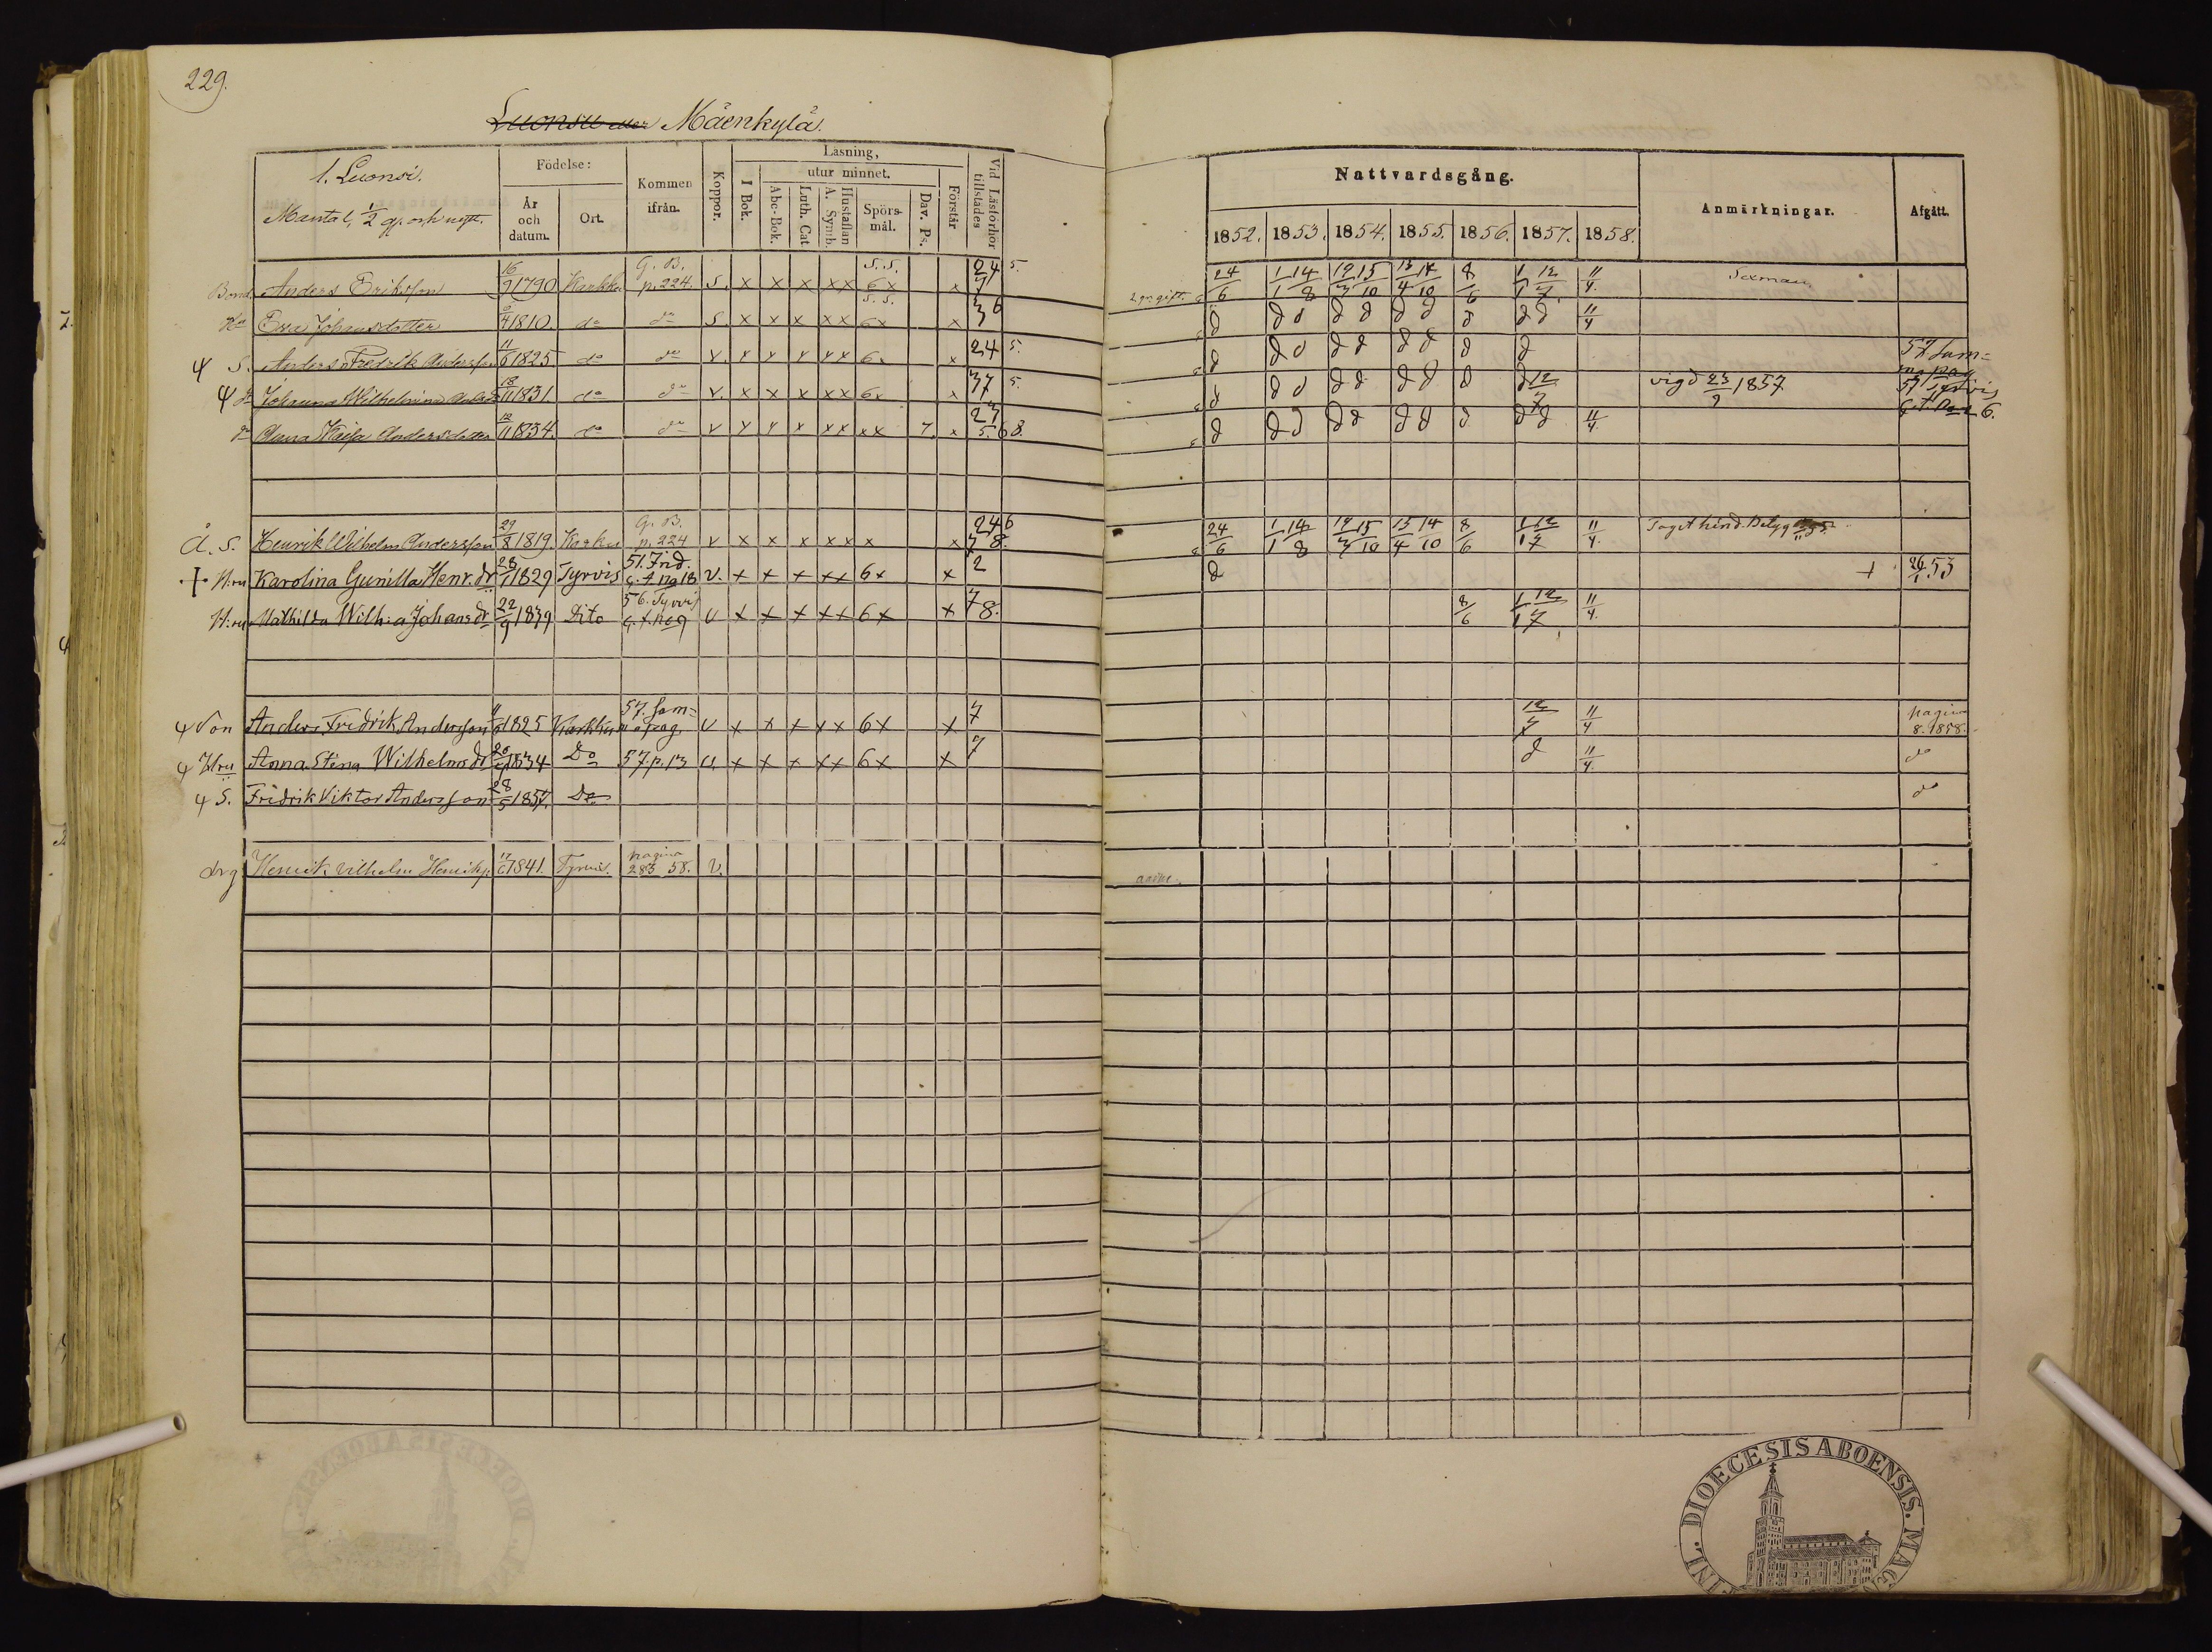 229.
Luonsu eller Mäenkylä.
1. Luonsi.
Mantal, 1/2 gl. och nytt.
Födelse:
År och datum.
Ort.
Kommen ifrån.
Koppor.
Läsning,
I Bok.
utur minnet.
Abc-Bok.
Luth. Cat
Hustaflan A. Symb.
Spörsmål.
Dav. Ps.
Förstår
Vid Läsförhör tillstädes
Nattvardsgång.
1852. 1853. 1854. 1855. 1856. 1857. 1858.
Anmärkningar.
Afgått.
Bond. Anders Eriksson 16/9 1790 Karkku G. B. p. 224. S. x x x x x S. S. 6 x x 24 7 5. 2 gr. gift. 24/6 1/1 14/8 12/3 15/10 13/4 14/10 8/6 1/1 12/7 11/4. Sexman
Hu Eva Johansdotter 1810. do do S. x x x x x S. S. 6 x x 3 6 11/4
4 S. Anders Fredrik Andersson 11/6 1825 do do v x x x x x 6 x x 24 5. 57 sam= ma pag
4 dr Johanna Wilhelmina Andersdr 18/11 1831. do do v. x x x x x 6 x x 37 5. 12/7 vigd 23/9 1857 57 Tyrvis
dr Anna Kaisa Andersdotter 12/11 1834. do do v x x x x x x x 7. x 23 5. 6 8. 11/4.
Å. S. Henrik Wilhelm Andersson 29/8 1819. Karku G. B. p. 224 v x x x x x x x 246 7 8. 24/6 1/1 14/8 12/3 15/10 13/4 14/10 8/6 1/1 12/7 11/4. Taget hind. Betyg
† H:ru Karolina Gunilla Henr. dr 28/1 1829 Tyrvis 51. Frid. v. x x x x x 6 x x 2 + 26/1 53
H:ru Mathilda Wilh:a Johansdr 22/9 1839 Dito 56. Tyrvis v x x x x x 6 x x 7 8. 8/6 1/1 12/7 11/4.
4 Son Anders Fridrik Andersson 11/6 1825 Karkku 57. Sam= ma pag. v x x x x x 6 x x 7 12/7 11/4 pagina 8. 1858.
4 H:ru Anna Stina Wilhelms dr 1834 Do 57. p. 13 v. x x x x x 6 x x 7 11/4. do
4 S. Fridrik Viktor Andersson 28/5 1857. Do do
drg Henrik Vilhelm Henriks. 1841. Tyrvis. pagina 283 58. V.
DIOECESIS ABOENSIS.